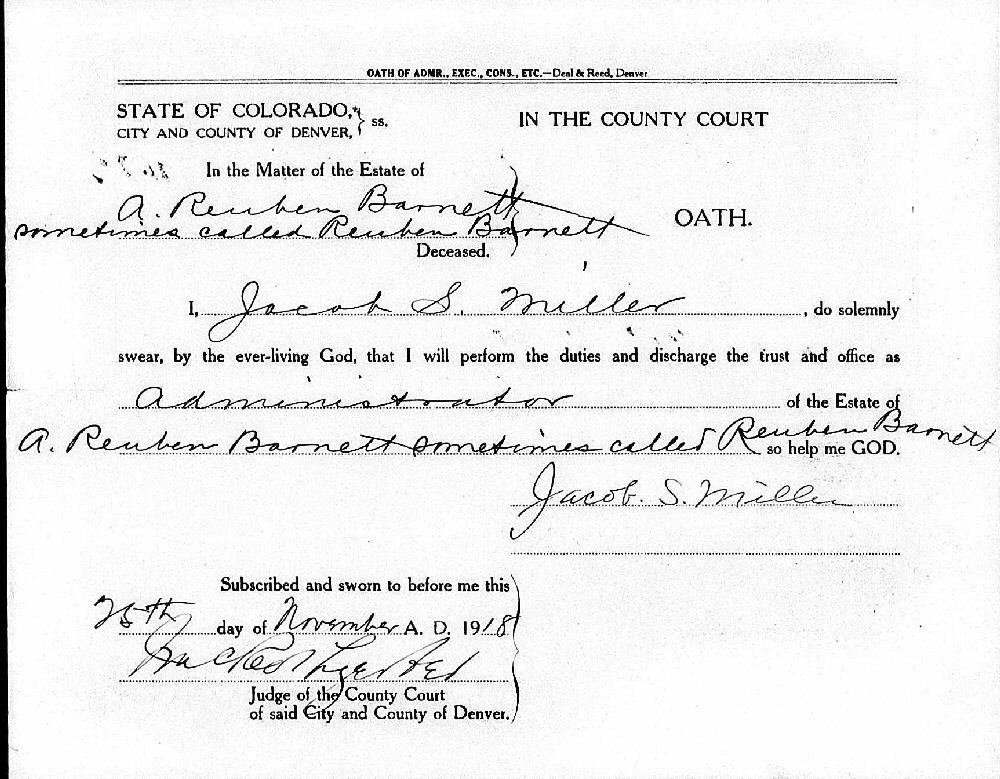 OATH OF ADMR., EXEC., CONS., ETC.—Deal & Reed, Denver
STATE OF COLORADO,
CITY AND COUNTY OF DENVER, } ss.
IN THE COUNTY COURT
In the Matter of the Estate of
A. Reuben Barnett
sometimes called Reuben Barnett
Deceased.
OATH.
I, Jacob S. Miller, do solemnly
swear, by the ever-living God, that I will perform the duties and discharge the trust and office as
Administrator of the Estate of
A. Reuben Barnett sometimes called Reuben Barnett
so help me GOD.
Jacob. S. Miller
Subscribed and sworn to before me this
25th day of November A. D. 1918
Judge of the County Court
of said City and County of Denver.